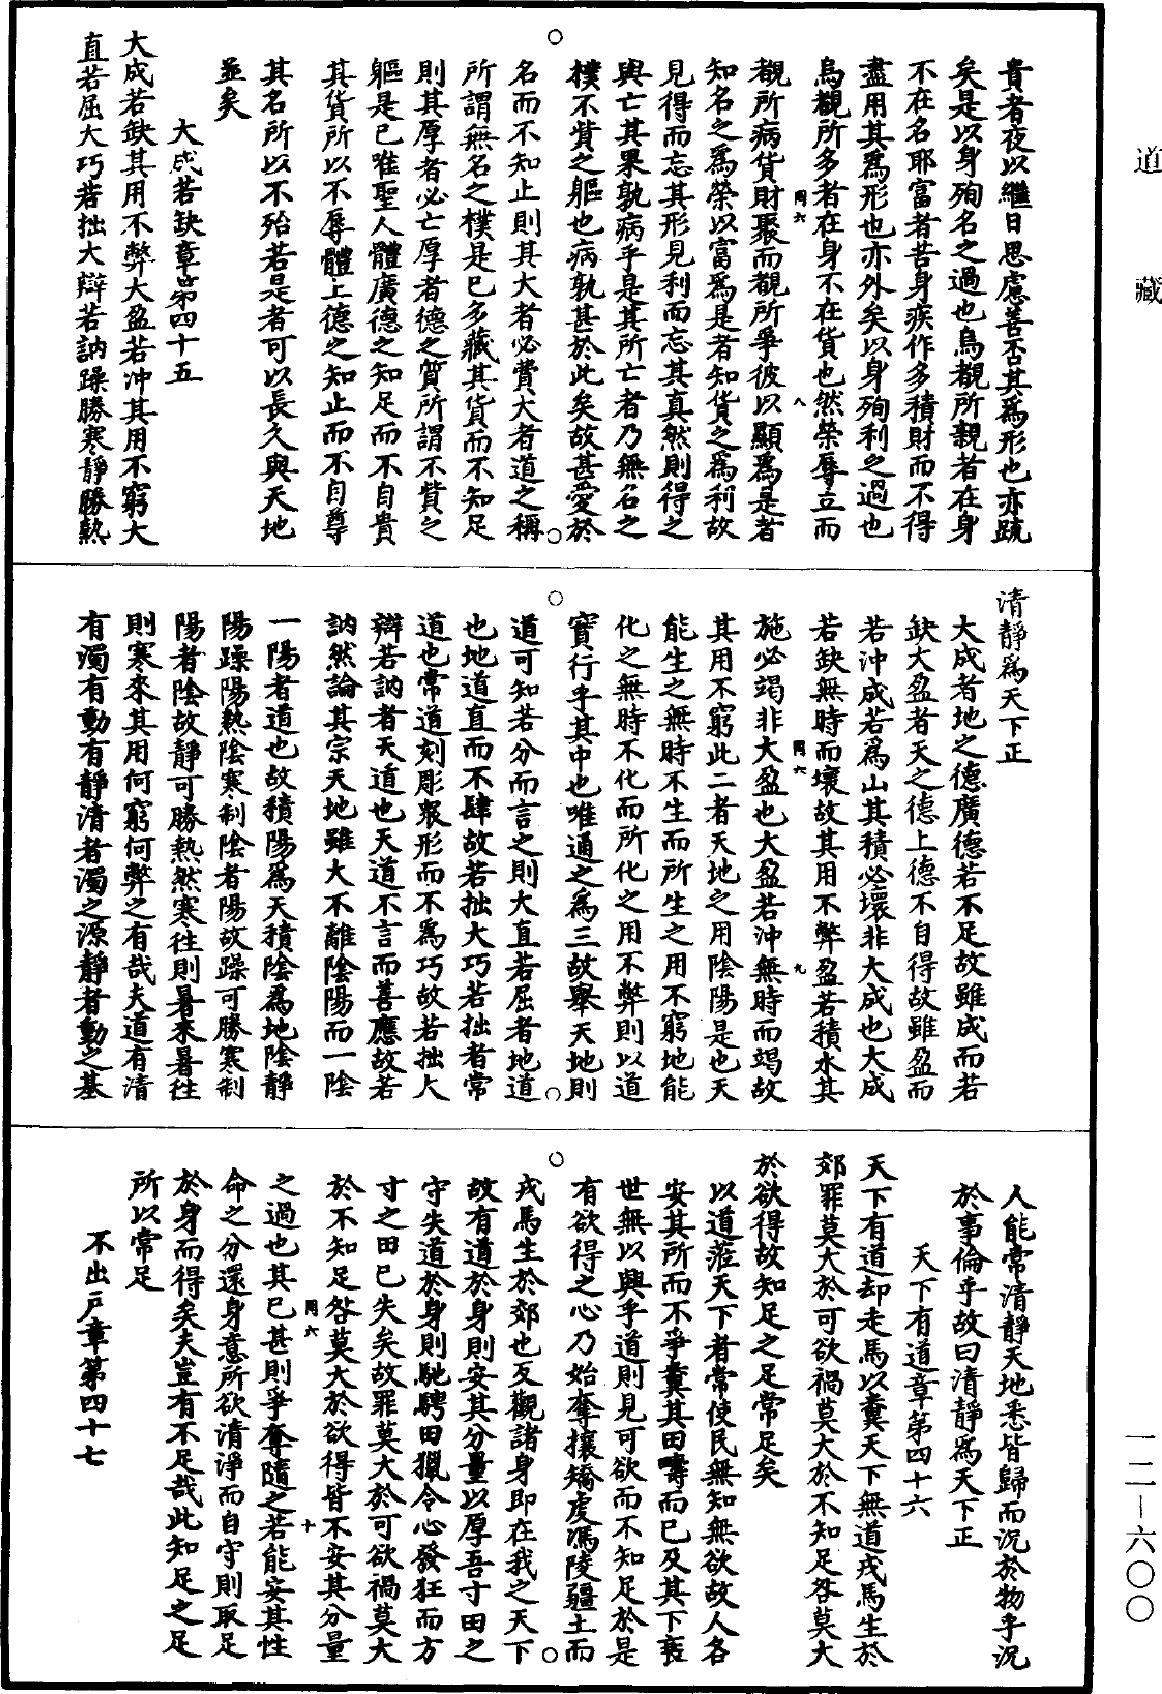 道藏
貴者夜以繼日思慮善否其爲形也亦疏
矣是以身殉名之過也烏覩所親者在身
不在名耶富者苦身疾作多積財而不得
盡用其爲形也亦外矣以身殉利之過也
烏覩所多者在身不在貨也然榮辱立而
覩所病貨財聚而覩所爭彼以顯爲是者
同六
八
知名之爲榮以富爲是者知貨之爲利故
見得而忘其形見利而忘其真然則得之
與亡其果孰病乎是其所亡者乃無名之
樸不貲之軀也病孰甚於此矣故甚愛於
名而不知止則其大者必費大者道之稱
所謂無名之樸是已多藏其貨而不知足
則其厚者必亡厚者德之質所謂不貲之
軀是已唯聖人體廣德之知足而不自貴
其貨所以不辱體上德之知止而不自尊
其名所以不殆若是者可以長久與天地
並矣
大成若缺章第四十五
大成若缺其用不弊大盈若沖其用不窮大
直若屈大巧若拙大辯若訥躁勝寒靜勝熱
清靜爲天下正
大成者地之德廣德若不足故雖成而若
缺大盈者天之德上德不自得故雖盈而
若沖成若爲山其積必壞非大成也大成
若缺無時而壞故其用不弊盈若積水其
同六
九
施必竭非大盈也大盈若沖無時而竭故
其用不窮此二者天地之用陰陽是也天
能生之無時不生而所生之用不窮地能
化之無時不化而所化之用不弊則以道
寶行乎其中也唯通之爲三故舉天地則
道可知若分而言之則大直若屈者地道
也地道直而不肆故若拙大巧若拙者常
道也常道刻彫衆形而不爲巧故若拙大
辯若訥者天道也天道不言而善應故若
訥然論其宗天地雖大不離陰陽而一陰
一陽者道也故積陽爲天積陰爲地陰靜
陽躁陽熱陰寒制陰者陽故躁可勝寒制
陽者陰故靜可勝熱然寒往則暑來暑往
則寒來其用何窮何弊之有哉夫道有清
有濁有動有靜清者濁之源靜者動之基
人能常清靜天地悉皆歸而況於物乎況
於事倫乎故曰清靜爲天下正
天下有道章第四十六
天下有道却走馬以糞天下無道戎馬生於
郊罪莫大於可欲禍莫大於不知足咎莫大
於欲得故知足之足常足矣
以道莅天下者常使民無知無欲故人各
安其所而不爭糞其田疇而已及其下衰
世無以興乎道則見可欲而不知足於是
有欲得之心乃始奪攘矯虔馮陵疆土而
戎馬生於郊也反觀諸身即在我之天下
故有道於身則安其分量以厚吾寸田之
守失道於身則馳騁田獵令心發狂而方
寸之田已失矣故罪莫大於可欲禍莫大
於不知足咎莫大於欲得皆不安其分量
同六
十
之過也其已甚則爭奪隨之若能安其性
命之分還身意所欲清淨而自守則取足
於身而得矣夫豈有不足哉此知足之足
所以常足
不出戶章第四十七
一二—六〇〇